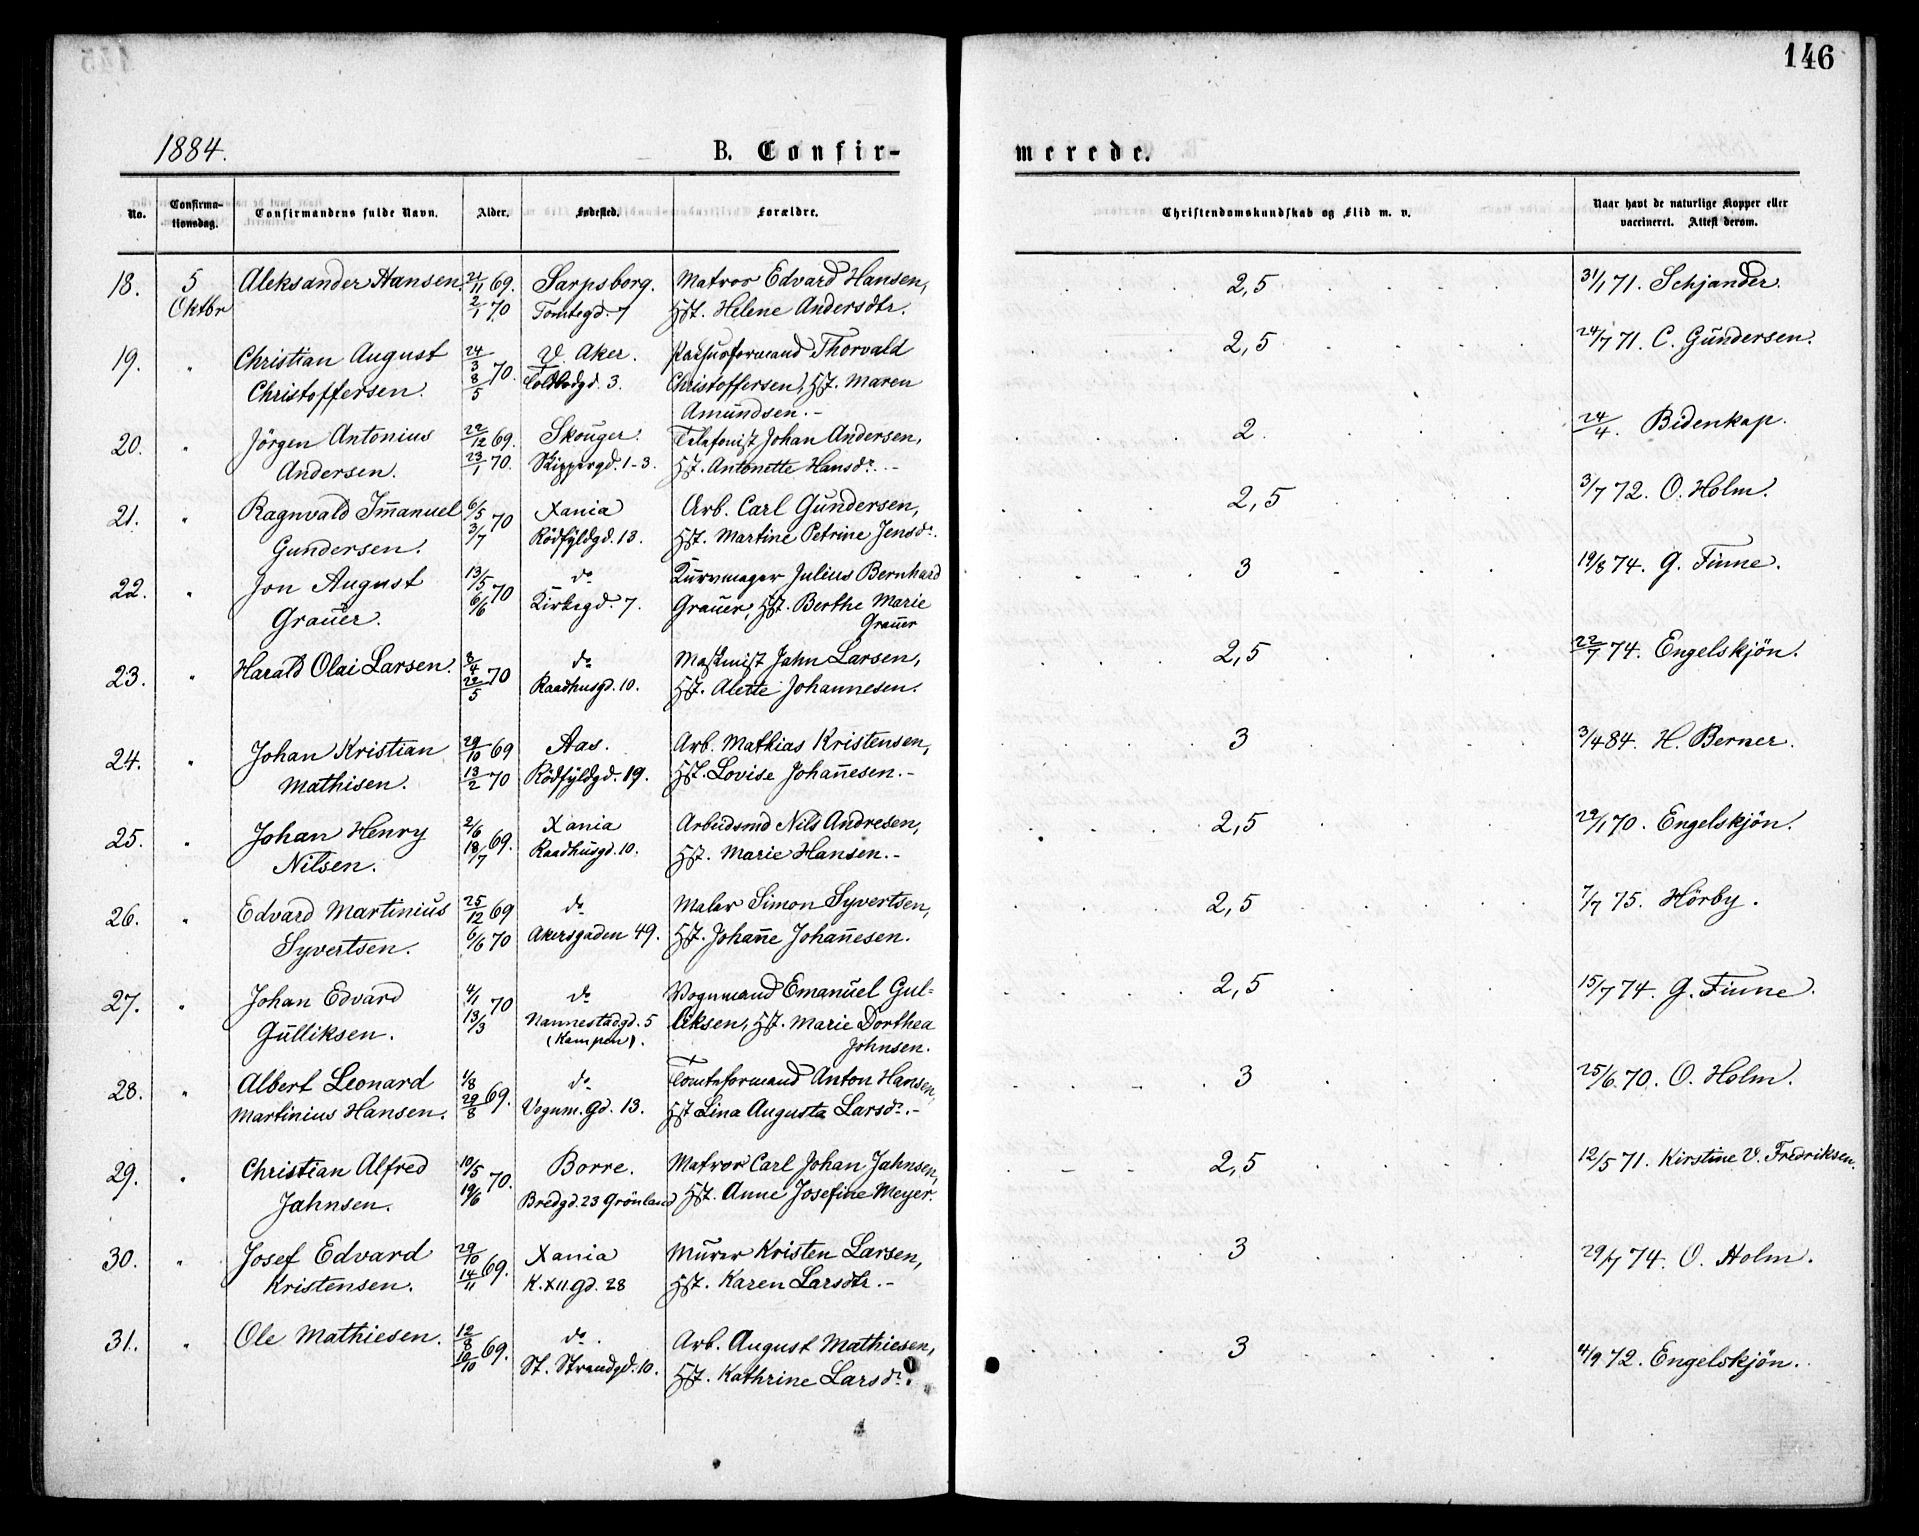 146
1884.
B. Confir-
merede.
No.
Confirma-
tionsdag.
Confirmandens fulde Navn.
Alder.
Fødested.
Forældre.
Christendomskundskab og Flid m. v.
Naar havt de naturlige Kopper eller
vaccineret. Attest derom.
18. 5 Aleksander Hansen. 21/11 69. Sarpsborg. Matros Edvard Hansen, 2,5 31/1 71. Schjander.
Oktbr 2/1 70 Tomtegd. 7 Hst. Helene Andersdtr.
19. " Christian August 24/3 V. Aker. Thorvald 2,5 24/7 71. C. Gundersen.
Christoffersen. 8/5 70. Toldbodgd. 3. Christoffersen, Hst. Maren
Amundsen.-
20. " Jörgen Antonius 22/12 69. Skouger. Telefonist Johan Andersen, 2. 24/4. Bidenkap.
Andersen. 23/1 70. Skippergd. 1-3. Hst. Antonette Hansdr.-
21. " Ragnvald Im̅anuel 6/5 70 Xania Arb. Carl Gundersen, 2,5 3/7 72. O. Holm.
Gundersen. 3/7 Rödfyldgd. 13. Hst. Martine Petrine Jensdr.
22. " Jon August 13/5 70 do Kurvmager Julius Bernhard 3 19/8 74. G. Finne.
Grauer. 6/6 Kirkegd. 7. Grauer, Hst. Berthe Marie
Grauer
23. " Harald Olai Larsen. 8/4 70 do Maskinist Jahn Larsen, 2,5 22/7 74. Engelskjön.
22/5 Raadhusgd. 10. Hst. Alette Johannesen.
24. " Johan Kristian 29/10 69 Aas. Arb. Mathias Kristensen, 3 3/4 84. H. Berner.
Mathisen. 13/2 70 Rödfyldgd. 19. Hst. Lovise Johan̅esen.-
25. " Johan Henry 2/6 69. Xania Arbeidsmd Nils Andresen, 2,5 22/1 70. Engelskjön.
Nilsen. 18/7 Raadhusgd. 10. Hst. Marie Hansen.-
26. " Edvard Martinius 25/12 69 do Maler Simon Syvertsen, 2,5 7/7 75. Hörby.
Syvertsen. 6/6 70 Akersgaden 49. Hst. Johan̅e Johan̅esen.
27. " Johan Edvard 4/1 70 do Vognmand Emanuel Gul- 2,5 15/7 74. G. Finne.
Gulliksen. 13/3 Nannestadgd. 5 liksen, Hst. Marie Dorthea
(Kampen). Johnsen.
28. " Albert Leonard 1/8 69. do Tomteformand Anton Hansen, 3 25/6 70. O. Holm.
Martinius Hansen. 29/8 Vognm. Gd. 13. Hst Lina Augusta Larsdr.-
29. " Christian Alfred 10/5 70. Borre. Matros Carl Johan Jahnsen, 2,5 12/5 71. Kirstine V. Fredriksen.
Jahnsen. 19/6 Bredgd. 23 Grönland Hst. Anne Josefine Meyer.
30. " Josef Edvard 29/10 69. Xania Murer Kristen Larsen, 3 29/7 74. O. Holm.
Kristensen. 14/11 K. XII. Gd. 28 Hst. Karen Larsdtr.-
31. " Ole Mathiesen. 12/8 69. do. Arb. August Mathiesen, 3 4/9 72. Engelskjön.
10/10 St. Strandgd. 10. Hst. Kathrine Larsdr.